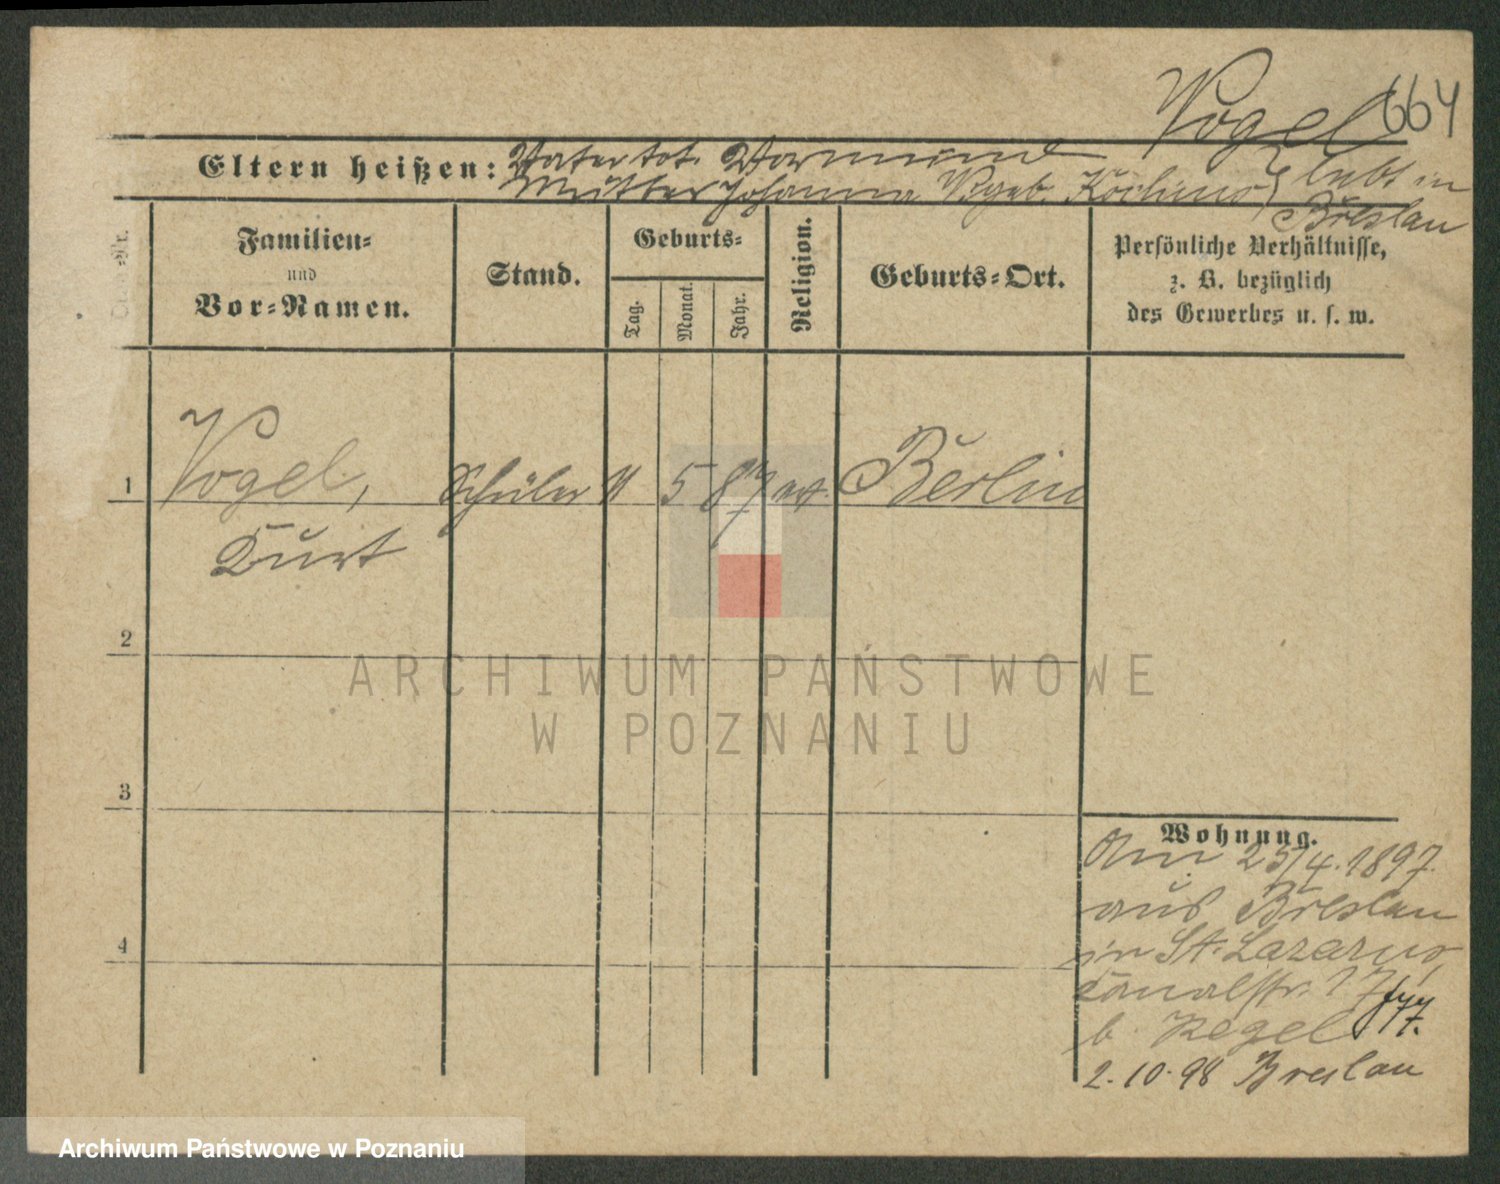 Vogel 664
Eltern heißen: Vater tot. Vormund
Mutter Johanna V. geb. lebt in
Breslau
Familien=
und
Vor=Namen.
Stand.
Geburts=
Tag.
Monat.
Jahr.
Religion.
Geburts=Ort.
Persönliche Verhältnisse,
z. B. bezüglich
des Gewerbes u. s. w.
1 Vogel, Schüler 11 5 87 ev. Berlin
Kurt
2
3
4
Wohnung.
Am 25/4. 1897
aus Breslau
in St. Lazarus,
Canalstr. 17
b. Regel
2. 10. 98 Breslau
ARCHIWUM PAŃSTWOWE
W POZNANIU
Archiwum Państwowe w Poznaniu